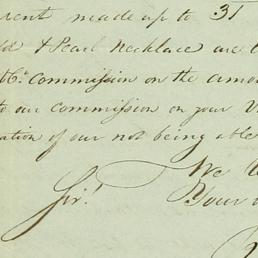 rent made up to 31
ld & Pearl Necklace are
Commission on the amou
to our commission on your
ation of our not being able
We
Sir!
Your